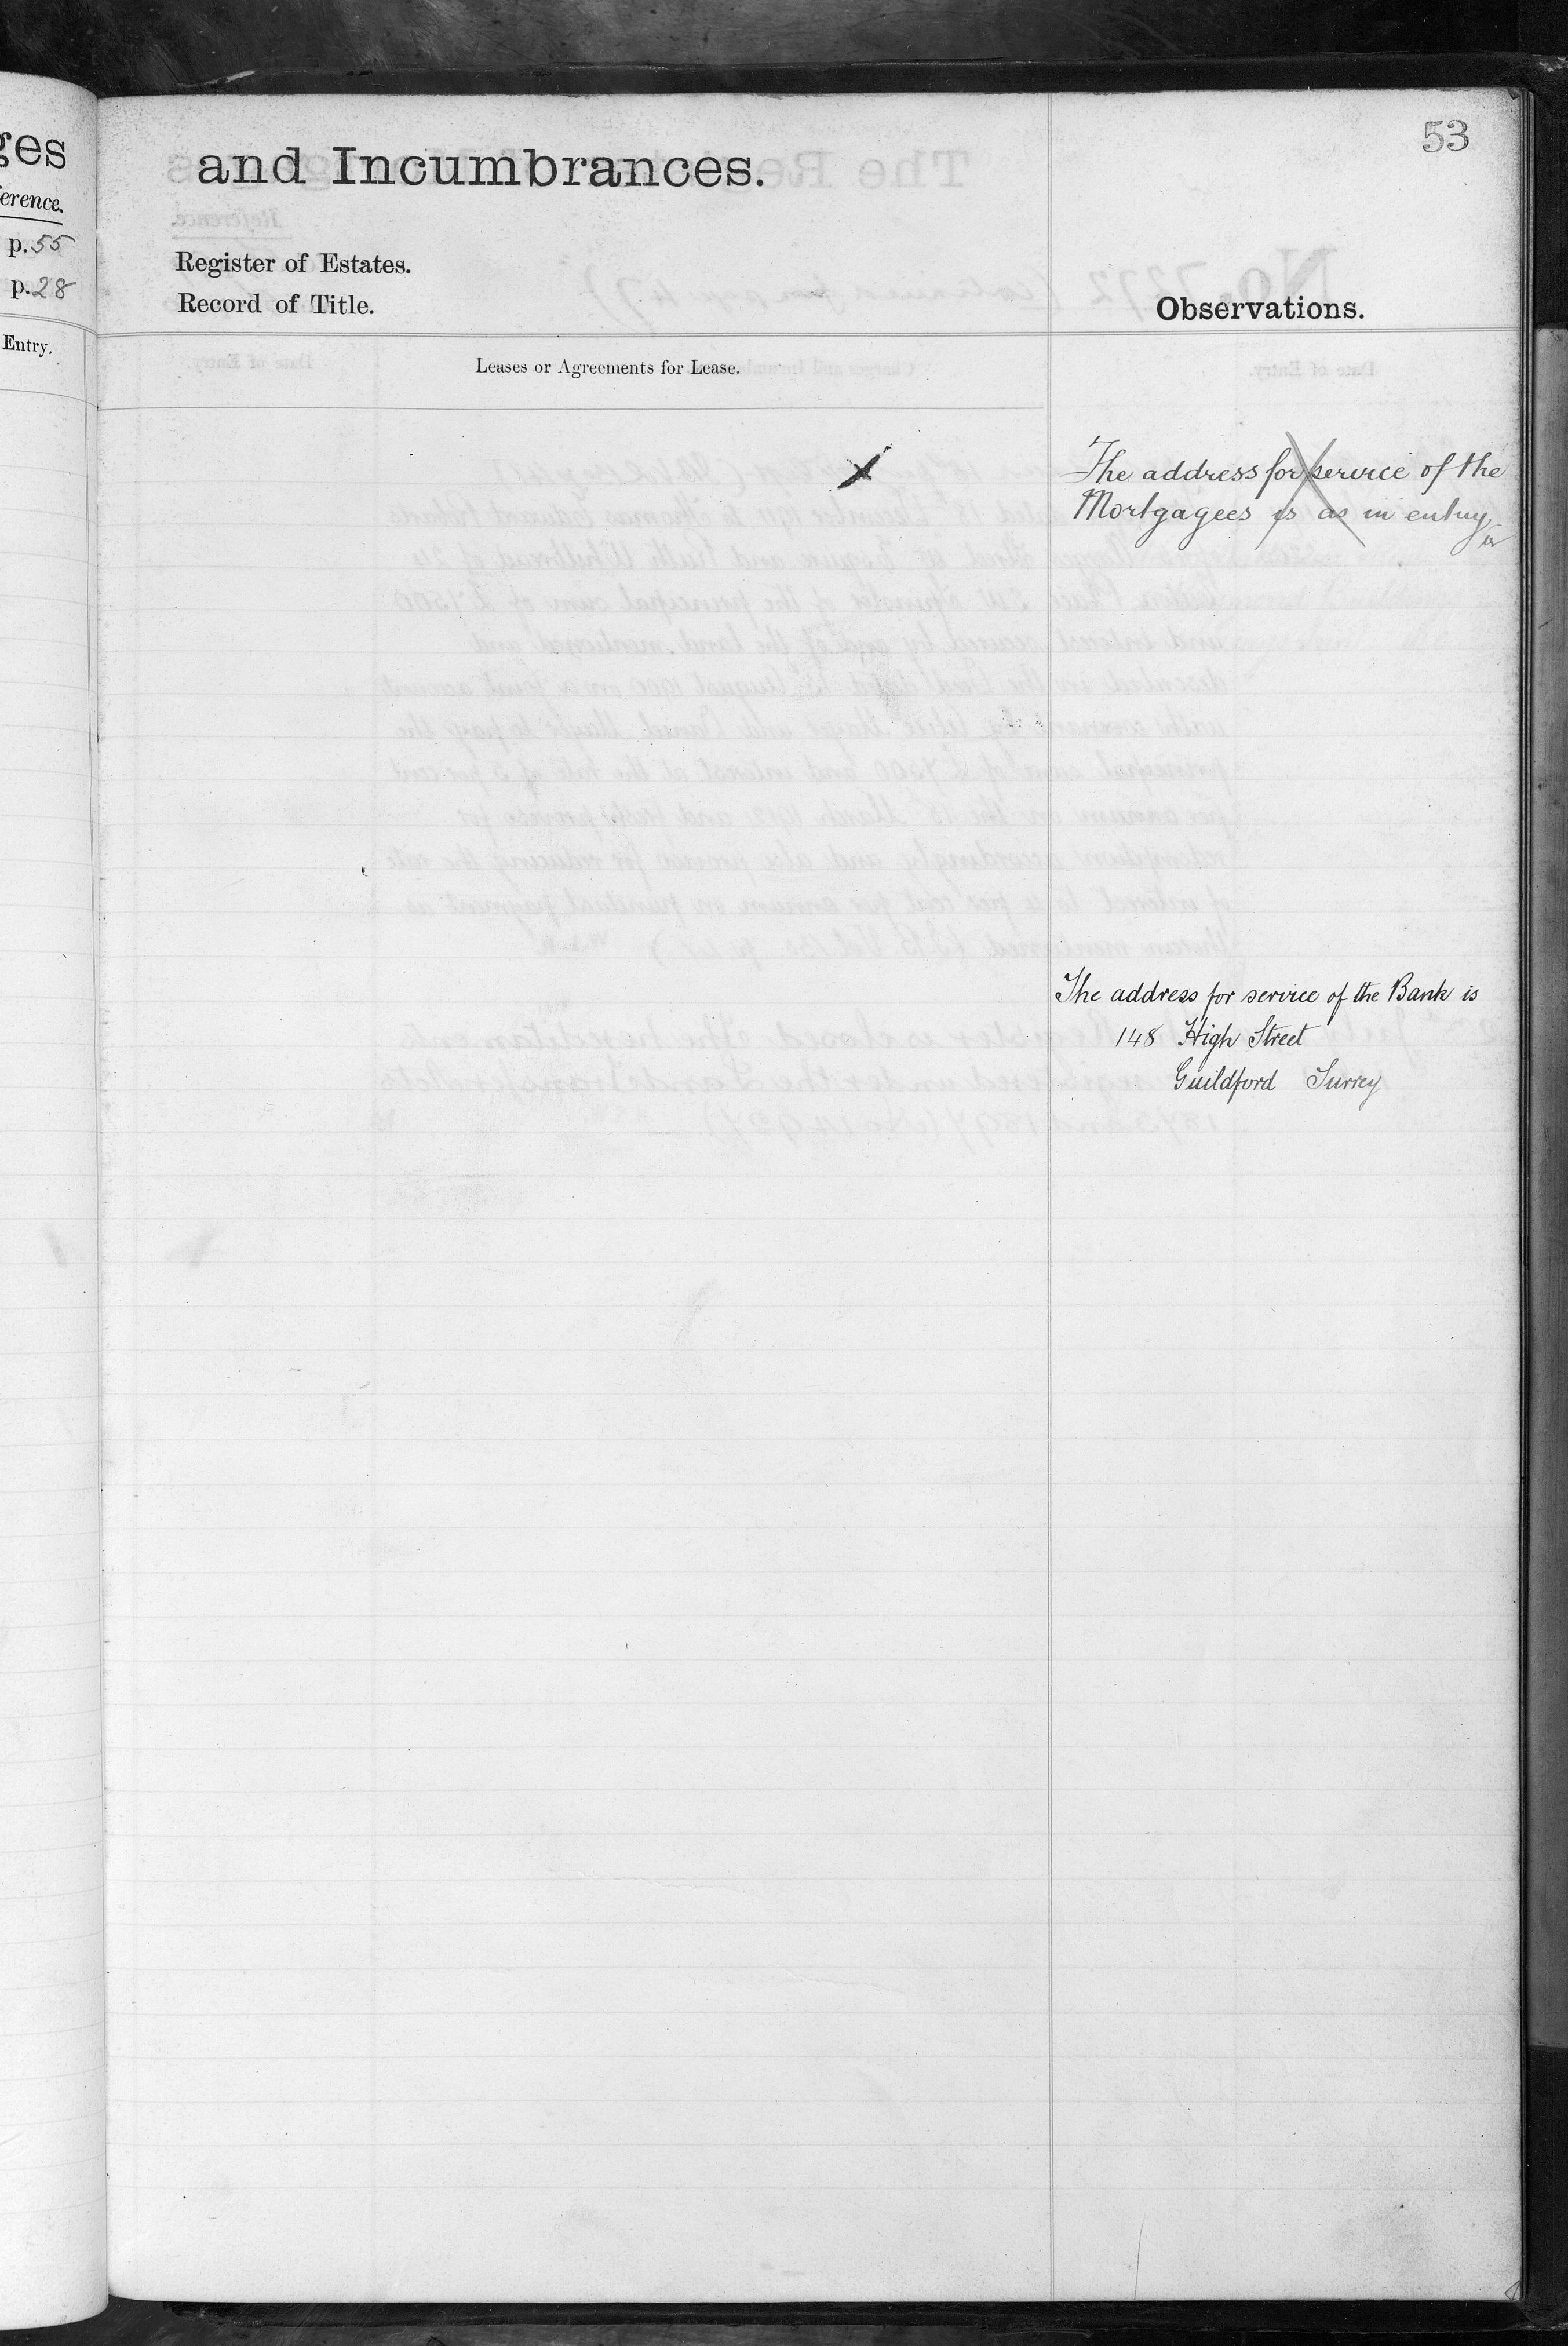 53
ges
and Incumbrances.
erence.
p. 55
Register of Estates.
p. 28
Record of Title.
Observations.
Entry.
Leases or Agreements for Lease.
The address for service of the
Mortgagees is as in entry
The address for service of the Bank is
148 High Street
Guildford Surrey